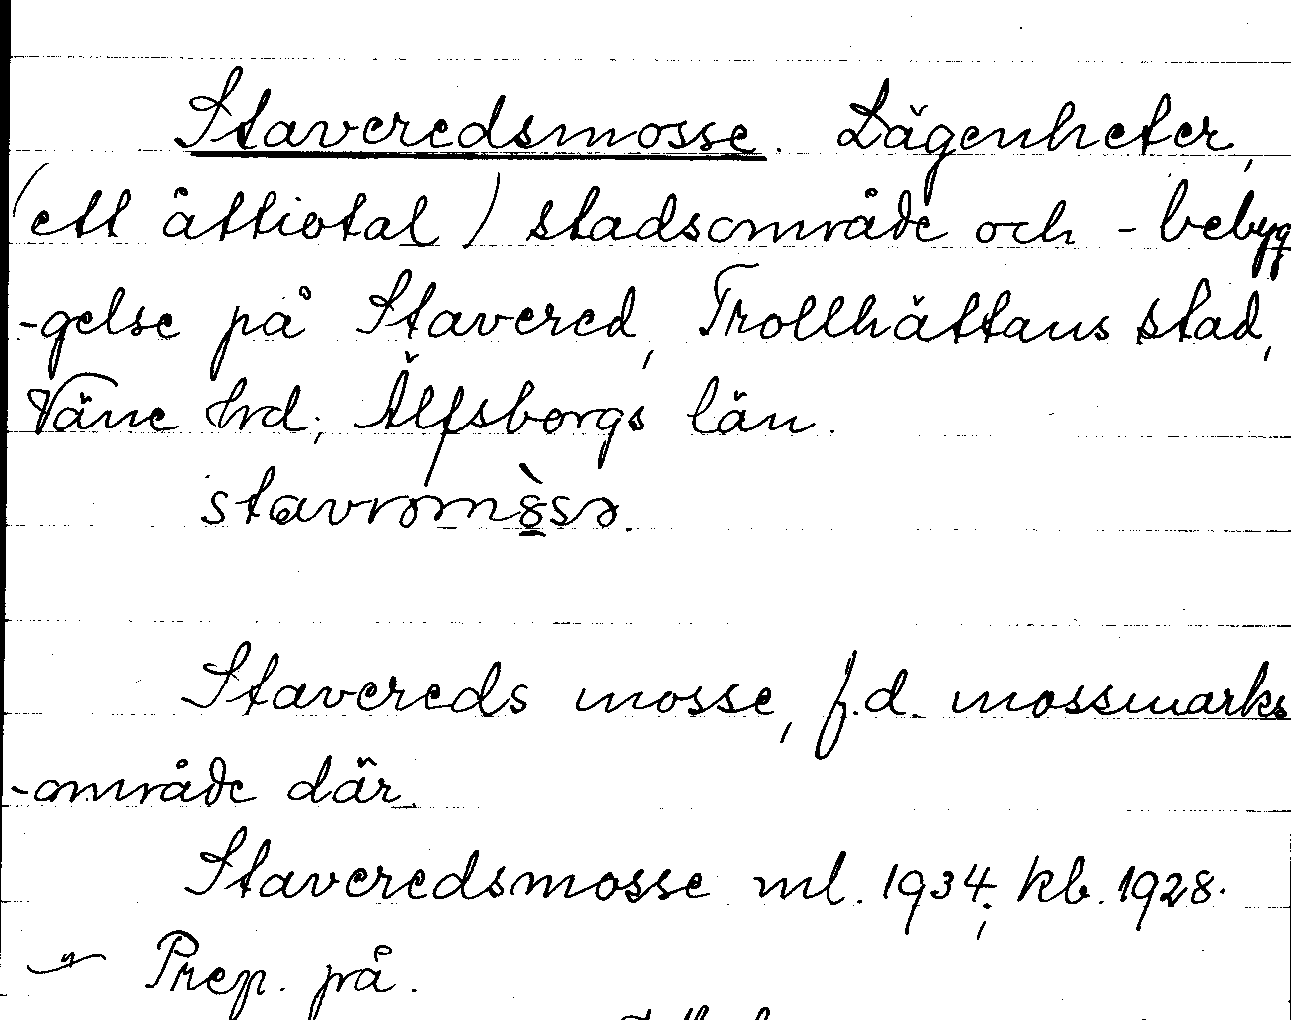 Staveredsmosse. Lägenheter,
(ett åttiotal) stadsområde och - bebyg
-gelse på Stavered, Trollhättans stad,
Väne hrd; Älfsborgs län.
Stavereds mosse, f.d. mossmarks
-område där.
Staveredsmosse ml. 1934; kb. 1928.
Prep. på.